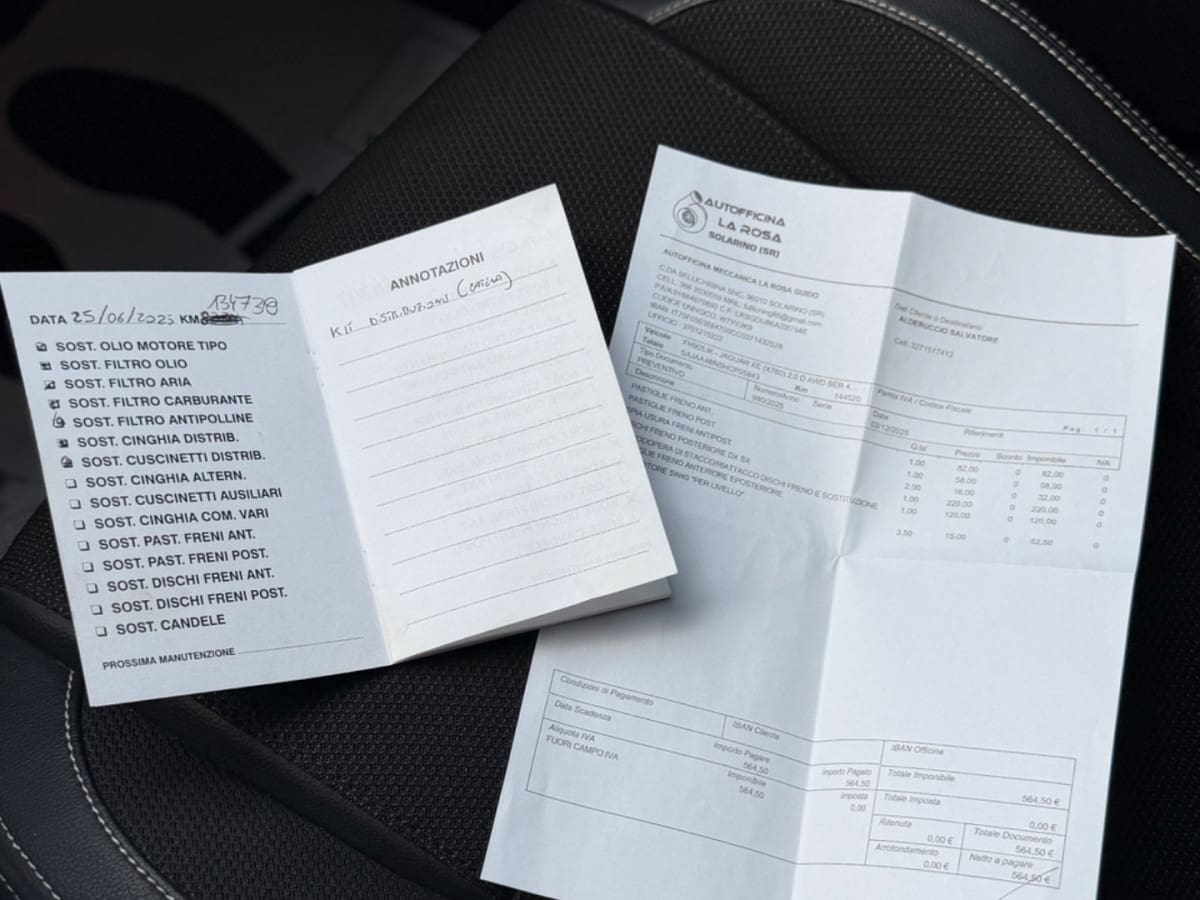 DATA 25/06/2025 KM 134739
SOST. OLIO MOTORE TIPO
SOST. FILTRO OLIO
SOST. FILTRO ARIA
SOST. FILTRO CARBURANTE
SOST. FILTRO ANTIPOLLINE
SOST. CINGHIA DISTRIB.
SOST. CUSCINETTI DISTRIB.
SOST. CINGHIA ALTERN.
SOST. CUSCINETTI AUSILIARI
SOST. CINGHIA COM. VARI
SOST. PAST. FRENI ANT.
SOST. PAST. FRENI POST.
SOST. DISCHI FRENI ANT.
SOST. DISCHI FRENI POST.
SOST. CANDELE
PROSSIMA MANUTENZIONE
ANNOTAZIONI
KIT DISTRIBUZIONE (CATENA)
AUTOFFICINA
LA ROSA
SOLARINO (SR)
AUTOFFICINA MECCANICA LA ROSA GUIDO
C.DA SELLICHISINA SNC, 96010 SOLARINO (SR)
UFFICIO : 3701215922
Dati Cliente o Destinatario
ALDERUCCIO SALVATORE
Cell: 3271517412
Partita IVA / Codice Fiscale
Veicolo FH905JK - JAGUAR XE (X760) 2.0 D AWD BER 4...
Telaio Km 144520
Tipo Documento Numero/Anno Serie Data Riferimenti Pag. 1 / 1
PREVENTIVO 980/2025 03/12/2025
Descrizione Q.tà Prezzo Sconto Imponibile IVA
PASTIGLIE FRENO ANT. 1,00 82,00 0 82,00 0
PASTIGLIE FRENO POST 1,00 58,00 0 58,00 0
PIA USURA FRENI ANT/POST 2,00 16,00 0 32,00 0
SCHI FRENO POSTERIORE DX SX 1,00 220,00 0 220,00 0
ODOPERA DI STACCO/RIATTACCO DISCHI FRENO E SOSTITUZIONE 1,00 120,00 0 120,00 0
GLIE FRENO ANTERIORE EPOSTERIORE
TORE 5W40 "PER LIVELLO" 3,50 15,00 0 52,50 0
Condizioni di Pagamento
IBAN Cliente
IBAN Officina
Data Scadenza Importo Pagare Importo Pagato
564,50 564,50
Aliquota IVA Imponibile Imposta
FUORI CAMPO IVA 564,50 0,00
Totale Imponibile 564,50 €
Totale Imposta 0,00 €
Ritenuta 0,00 €
Totale Documento 564,50 €
Arrotondamento 0,00 €
Netto a pagare 564,50 €